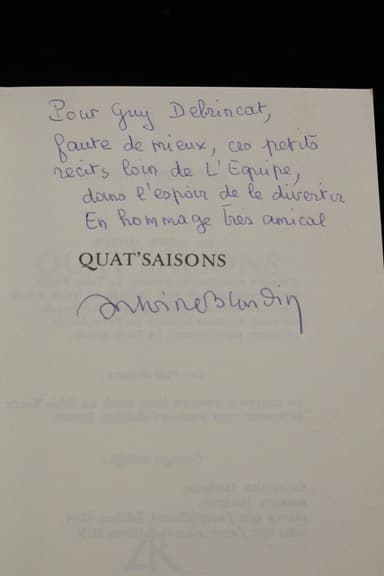 Pour Guy Debrincat,
faute de mieux, ces petits
récits loin de L'Equipe,
dans l'espoir de le divertir
En hommage Très amical
QUAT'SAISONS
Antoine Blondin